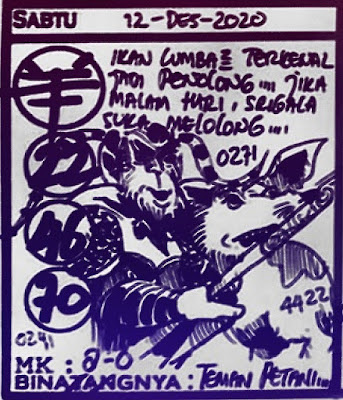 SABTU 12-DES-2020
IKAN LUMBA² TERKENAL
JADI PENOLONG.... JIKA
MALAM HARI, SRIGALA
SUKA MELOLONG....
0271
22
46
70
4422
0291
MK : 2-0
BINATANGNYA : TEMAN PETANI...